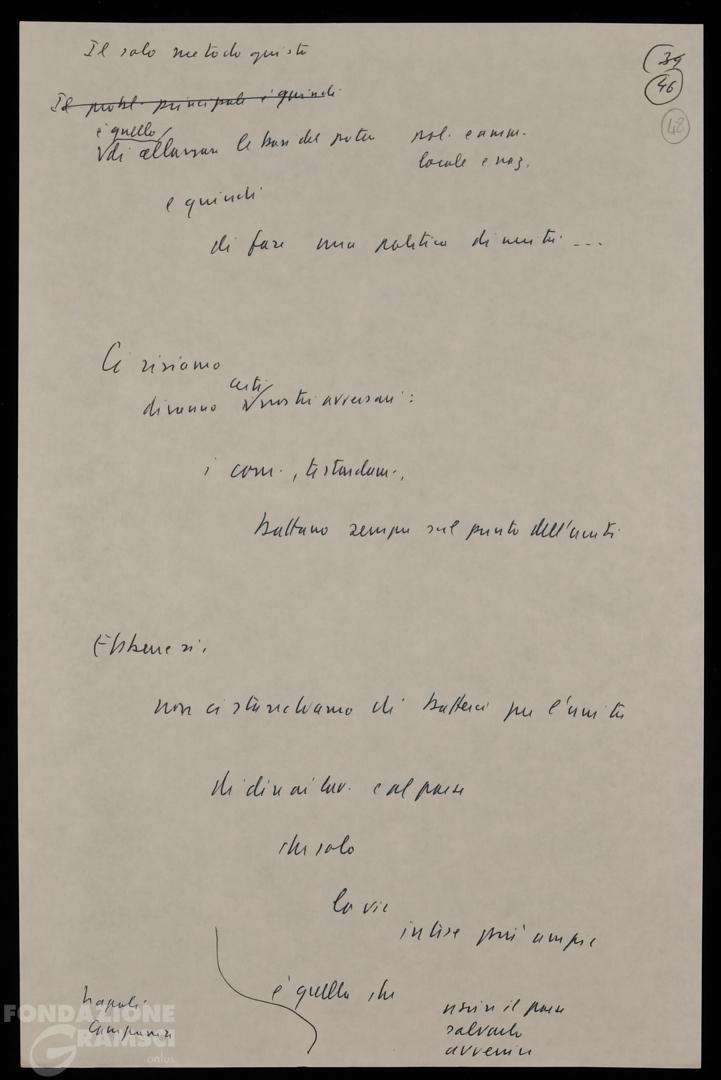 Il solo metodo giusto
39
46
48
Il probl. principale è quindi
è quello
di allargare le basi del potere pol. e amm.
locale e naz.
e quindi
di fare una politica di unità ...
Ci risiamo
diranno certi nostri avversari:
i com., testardam.,
battono sempre sul punto dell'unità
Ebbene sì,
non ci stanchiamo di batterci per l'unità
di dire ai lav. e al paese
che solo
la via
intese più ampie
è quella che
Napoli
Campania
il paese
salvarlo
avvenire
FONDAZIONE
GRAMSCI
onlus